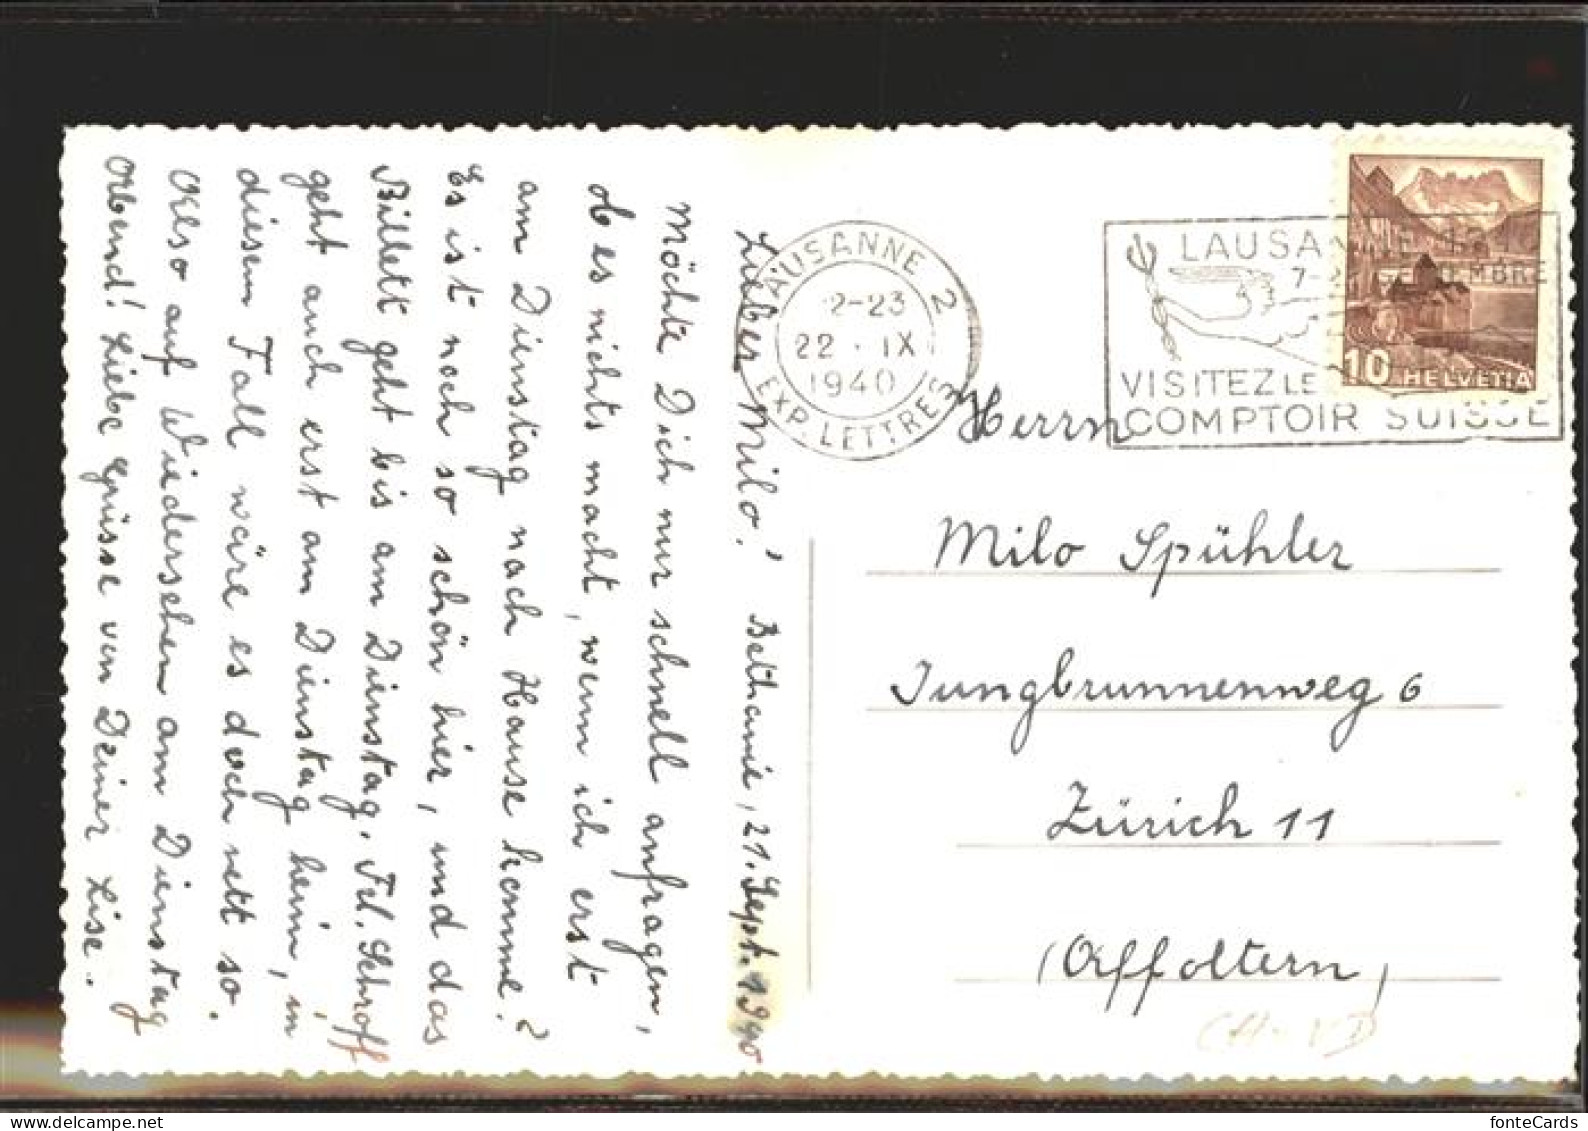 Lieber Milo! Bethanie, 21. Sept. 1940
Möchte Dich nur schnell anfragen,
ob es nichts macht, wenn ich erst
am Dienstag nach Hause komme?
Es ist noch so schön hier, und das
Billett geht bis am Dienstag. Frl. Schroff
geht auch erst am Dienstag heim, in
diesem Fall wäre es doch nett so.
Also auf Wiedersehen am Dienstag
Abend! Liebe Grüsse von Deiner Lise.
LAUSANNE 2
2-23
22·IX
1940
EXP. LETTRES
LAUSANNE 1940
7-22 SEPTEMBRE
VISITEZ LE
COMPTOIR SUISSE
10 HELVETIA
Herrn
Milo Spühler
Jungbrunnenweg 6
Zürich 11
(Affoltern)
CH-VD
fonteCards